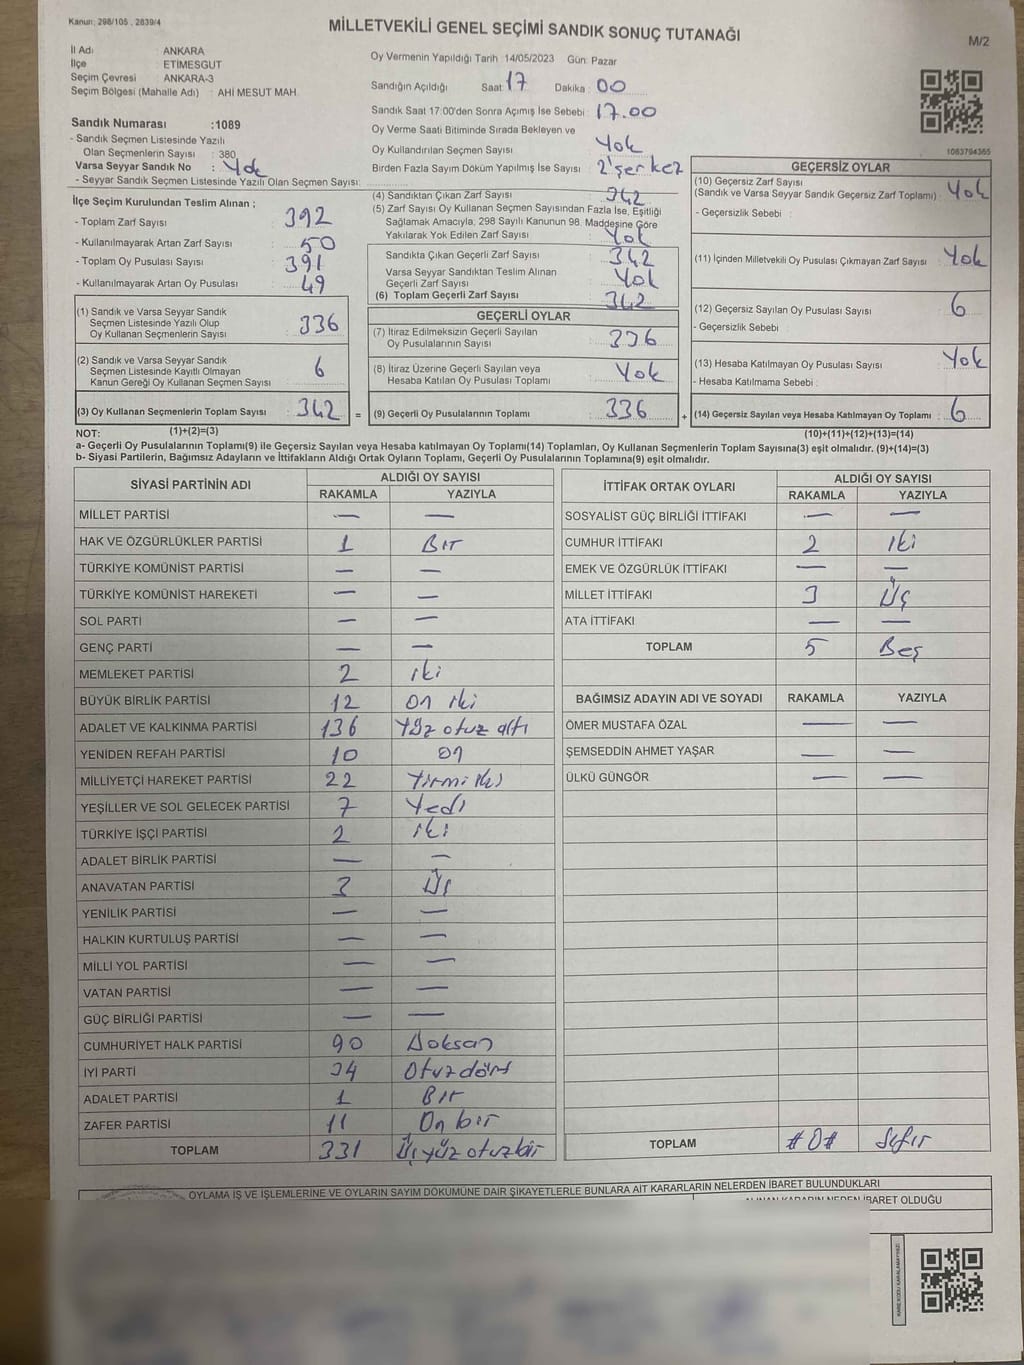 Kanun: 298/105 . 2839/4
MİLLETVEKİLİ GENEL SEÇİMİ SANDIK SONUÇ TUTANAĞI
M/2
İl Adı : ANKARA
İlçe : ETİMESGUT
Seçim Çevresi : ANKARA-3
Seçim Bölgesi (Mahalle Adı) : AHİ MESUT MAH.
Oy Vermenin Yapıldığı Tarih : 14/05/2023 Gün: Pazar
Sandığın Açıldığı Saat : 17 Dakika : 00
Sandık Saat 17:00'den Sonra Açımış İse Sebebi : 17.00
Oy Verme Saati Bitiminde Sırada Bekleyen ve
Oy Kullandırılan Seçmen Sayısı : Yok
Birden Fazla Sayım Döküm Yapılmış İse Sayısı : 2'şer kez
1063794365
Sandık Numarası :1089
- Sandık Seçmen Listesinde Yazılı
Olan Seçmenlerin Sayısı : 380
Varsa Seyyar Sandık No : Yok
- Seyyar Sandık Seçmen Listesinde Yazılı Olan Seçmen Sayısı:
İlçe Seçim Kurulundan Teslim Alınan ;
- Toplam Zarf Sayısı : 392
- Kullanılmayarak Artan Zarf Sayısı : 50
- Toplam Oy Pusulası Sayısı : 391
- Kullanılmayarak Artan Oy Pusulası : 49
(1) Sandık ve Varsa Seyyar Sandık
Seçmen Listesinde Yazılı Olup
Oy Kullanan Seçmenlerin Sayısı : 336
(2) Sandık ve Varsa Seyyar Sandık
Seçmen Listesinde Kayıtlı Olmayan
Kanun Gereği Oy Kullanan Seçmen Sayısı : 6
(3) Oy Kullanan Seçmenlerin Toplam Sayısı : 342 =
(1)+(2)=(3)
(4) Sandıktan Çıkan Zarf Sayısı : 342
(5) Zarf Sayısı Oy Kullanan Seçmen Sayısından Fazla İse, Eşitliği
Sağlamak Amacıyla; 298 Sayılı Kanunun 98. Maddesine Göre
Yakılarak Yok Edilen Zarf Sayısı : Yok
Sandıkta Çıkan Geçerli Zarf Sayısı : 342
Varsa Seyyar Sandıktan Teslim Alınan
Geçerli Zarf Sayısı : Yok
(6) Toplam Geçerli Zarf Sayısı : 342
GEÇERLİ OYLAR
(7) İtiraz Edilmeksizin Geçerli Sayılan
Oy Pusulalarının Sayısı : 336
(8) İtiraz Üzerine Geçerli Sayılan veya
Hesaba Katılan Oy Pusulası Toplamı : Yok
(9) Geçerli Oy Pusulalarının Toplamı : 336 +
GEÇERSİZ OYLAR
(10) Geçersiz Zarf Sayısı
(Sandık ve Varsa Seyyar Sandık Geçersiz Zarf Toplamı) : Yok
- Geçersizlik Sebebi :
(11) İçinden Milletvekili Oy Pusulası Çıkmayan Zarf Sayısı : Yok
(12) Geçersiz Sayılan Oy Pusulası Sayısı : 6
- Geçersizlik Sebebi :
(13) Hesaba Katılmayan Oy Pusulası Sayısı : Yok
- Hesaba Katılmama Sebebi :
(14) Geçersiz Sayılan veya Hesaba Katılmayan Oy Toplamı : 6
(10)+(11)+(12)+(13)=(14)
NOT:
a- Geçerli Oy Pusulalarının Toplamı(9) ile Geçersiz Sayılan veya Hesaba katılmayan Oy Toplamı(14) Toplamları, Oy Kullanan Seçmenlerin Toplam Sayısına(3) eşit olmalıdır. (9)+(14)=(3)
b- Siyasi Partilerin, Bağımsız Adayların ve İttifakların Aldığı Ortak Oyların Toplamı, Geçerli Oy Pusulalarının Toplamına(9) eşit olmalıdır.
SİYASİ PARTİNİN ADI ALDIĞI OY SAYISI
RAKAMLA YAZIYLA
MİLLET PARTİSİ — —
HAK VE ÖZGÜRLÜKLER PARTİSİ 1 Bir
TÜRKİYE KOMÜNİST PARTİSİ — —
TÜRKİYE KOMÜNİST HAREKETİ — —
SOL PARTİ — —
GENÇ PARTİ — —
MEMLEKET PARTİSİ 2 iki
BÜYÜK BİRLİK PARTİSİ 12 on iki
ADALET VE KALKINMA PARTİSİ 136 Yüz otuz altı
YENİDEN REFAH PARTİSİ 10 on
MİLLİYETÇİ HAREKET PARTİSİ 22 Yirmi iki
YEŞİLLER VE SOL GELECEK PARTİSİ 7 Yedi
TÜRKİYE İŞÇİ PARTİSİ 2 iki
ADALET BİRLİK PARTİSİ — —
ANAVATAN PARTİSİ 3 Üç
YENİLİK PARTİSİ — —
HALKIN KURTULUŞ PARTİSİ — —
MİLLİ YOL PARTİSİ — —
VATAN PARTİSİ — —
GÜÇ BİRLİĞİ PARTİSİ — —
CUMHURİYET HALK PARTİSİ 90 Doksan
İYİ PARTİ 34 Otuzdört
ADALET PARTİSİ 1 Bir
ZAFER PARTİSİ 11 On bir
TOPLAM 331 Üçyüz otuzbir
İTTİFAK ORTAK OYLARI ALDIĞI OY SAYISI
RAKAMLA YAZIYLA
SOSYALİST GÜÇ BİRLİĞİ İTTİFAKI — —
CUMHUR İTTİFAKI 2 iki
EMEK VE ÖZGÜRLÜK İTTİFAKI — —
MİLLET İTTİFAKI 3 Üç
ATA İTTİFAKI — —
TOPLAM 5 Beş
BAĞIMSIZ ADAYIN ADI VE SOYADI RAKAMLA YAZIYLA
ÖMER MUSTAFA ÖZAL — —
ŞEMSEDDİN AHMET YAŞAR — —
ÜLKÜ GÜNGÖR — —
TOPLAM #0# Sıfır
OYLAMA İŞ VE İŞLEMLERİNE VE OYLARIN SAYIM DÖKÜMÜNE DAİR ŞİKAYETLERLE BUNLARA AİT KARARLARIN NELERDEN İBARET BULUNDUKLARI
ALINAN KARARIN NEDEN İBARET OLDUĞU
KARE KODU KARALAMAYINIZ!